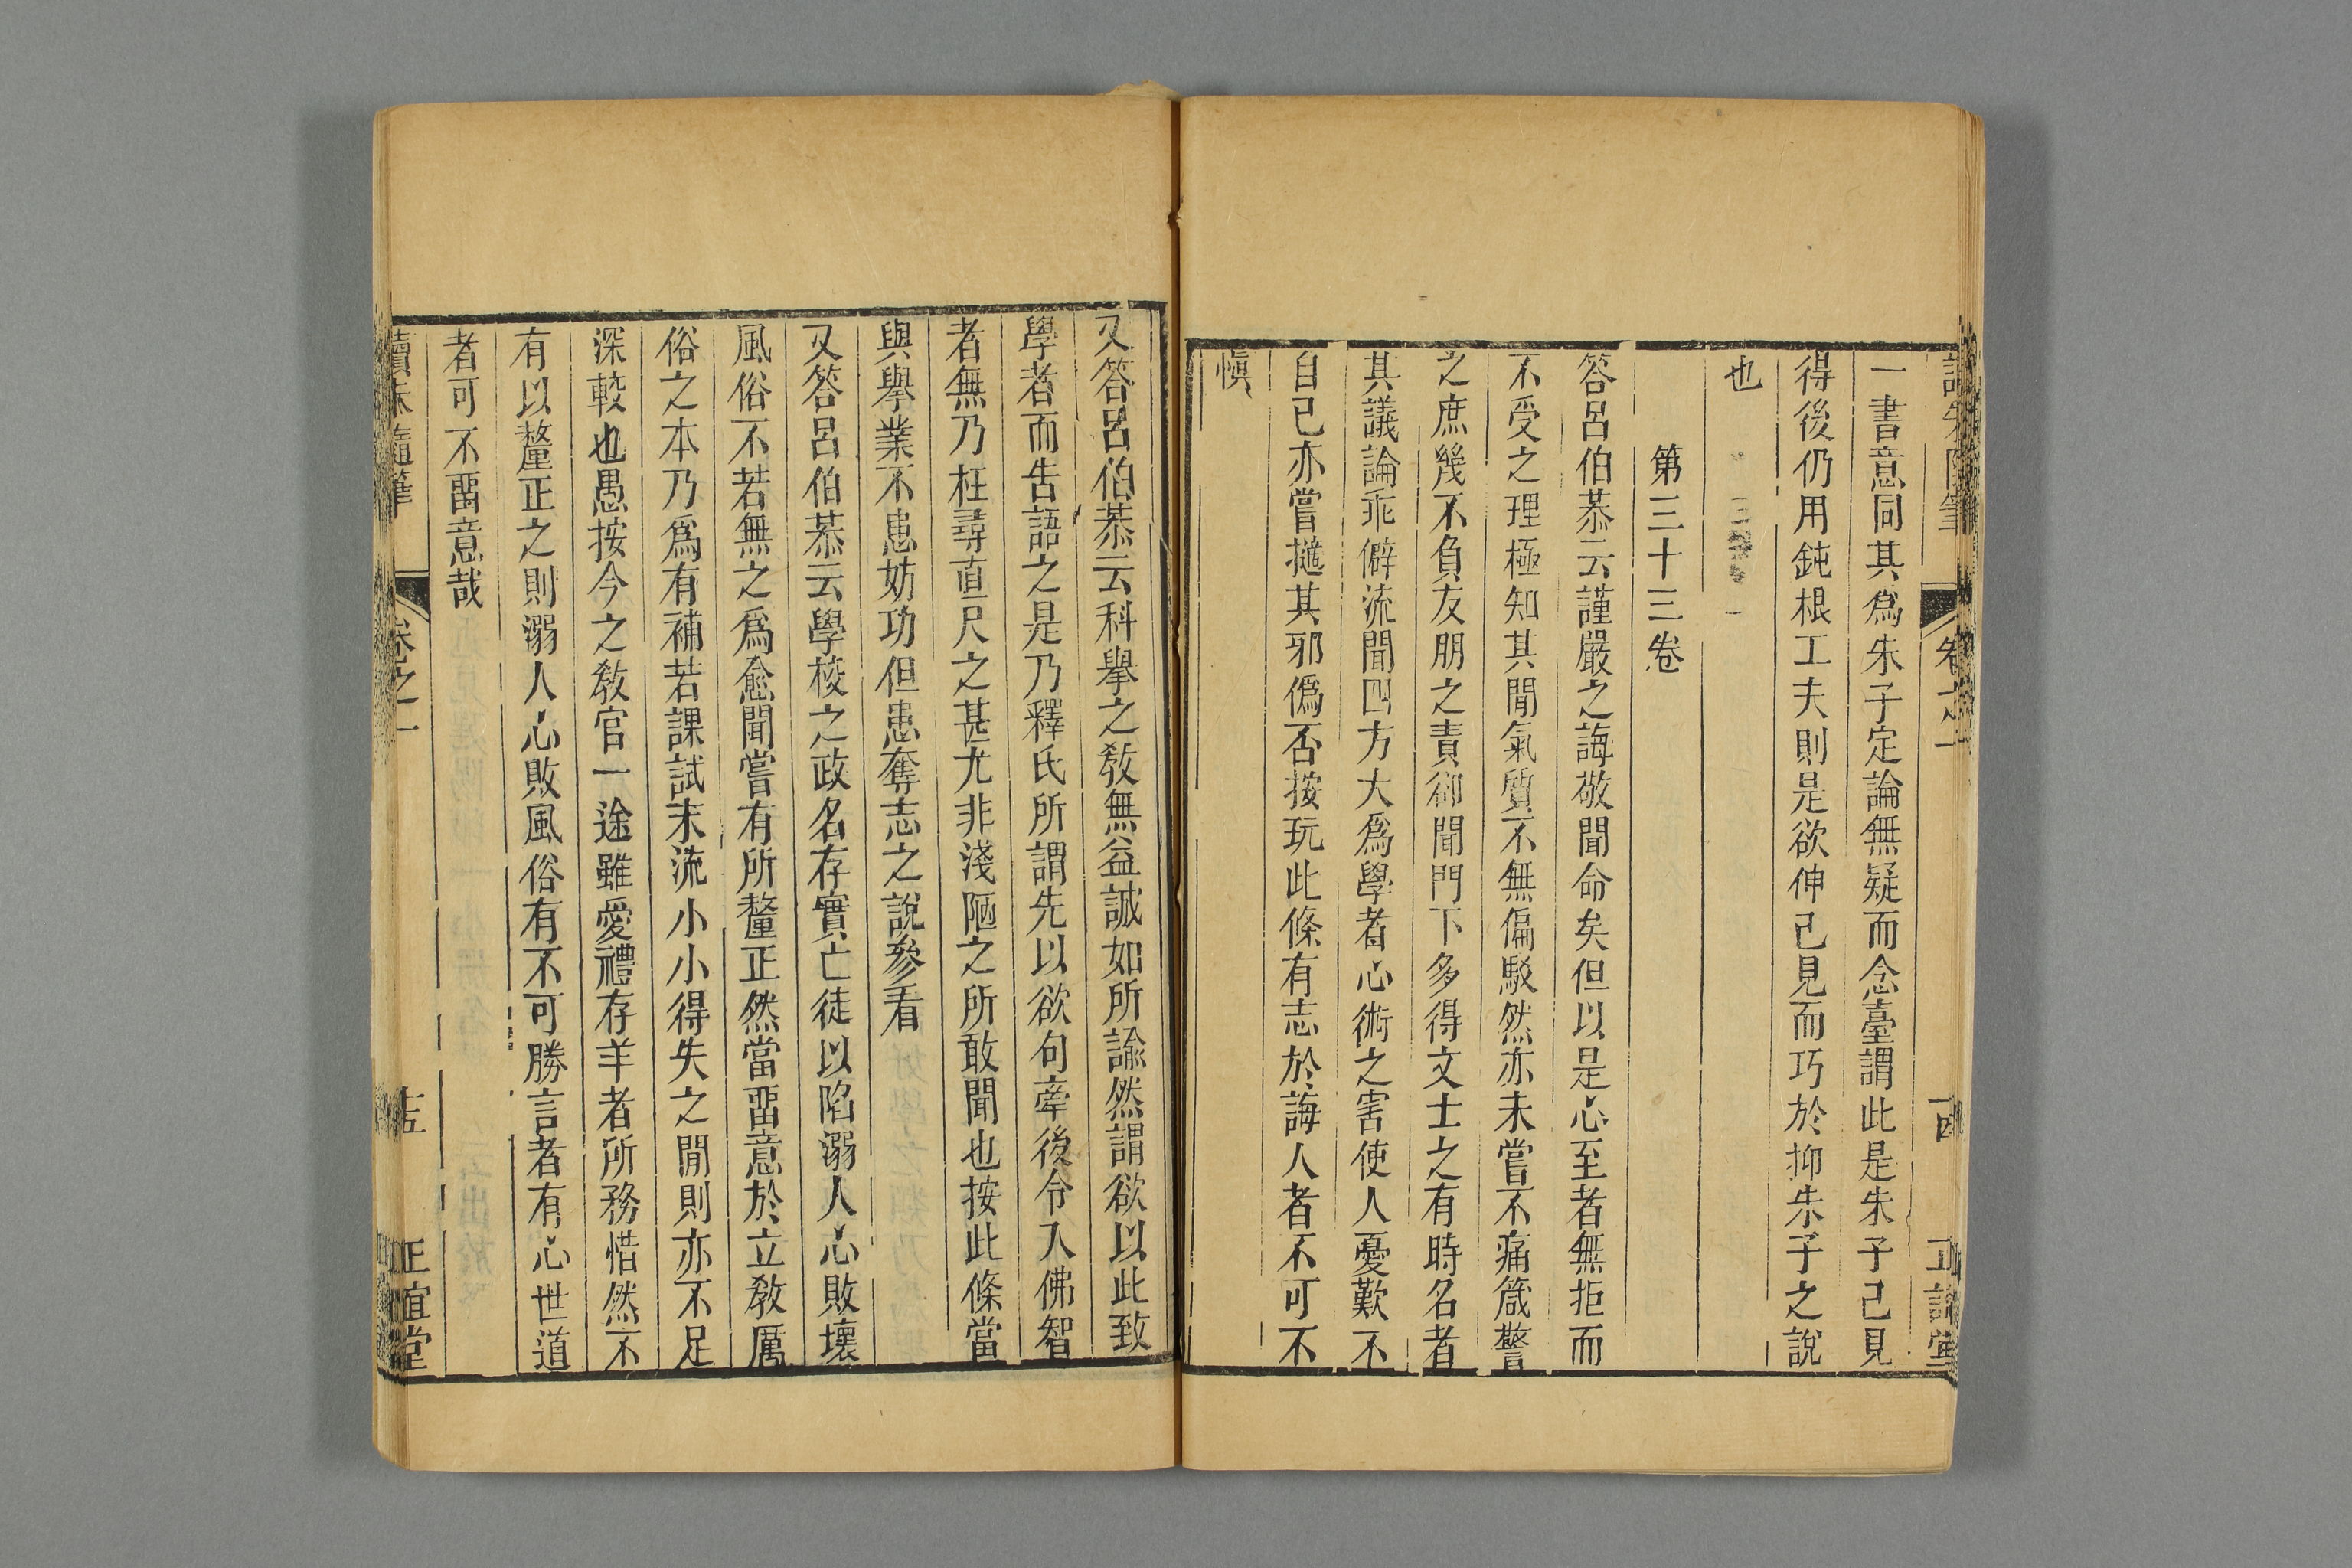 讀朱隨筆 卷之一 十四 正誼堂
一書意同其爲朱子定論無疑而念臺謂此是朱子己見
得後仍用鈍根工夫則是欲伸己見而巧於抑朱子之說
也
第三十三卷
答呂伯恭云謹嚴之誨敬聞命矣但以是心至者無拒而
不受之理極知其間氣質不無偏駁然亦未嘗不痛箴警
之庶幾不負友朋之責卻聞門下多得文士之有時名者
其議論乖僻流聞四方大爲學者心術之害使人憂歎不
自已亦嘗擿其邪僞否按玩此條有志於誨人者不可不
愼
又答呂伯恭云科擧之敎無益誠如所諭然謂欲以此致
學者而告語之是乃釋氏所謂先以欲句牽後令入佛智
者無乃枉尋直尺之甚尤非淺陋之所敢聞也按此條當
與擧業不患妨功但患奪志之說參看
又答呂伯恭云學校之政名存實亡徒以陷溺人心敗壞
風俗不若無之爲愈聞嘗有所釐正然當畱意於立敎厲
俗之本乃爲有補若課試末流小小得失之間則亦不足
深較也愚按今之敎官一途雖愛禮存羊者所務惜然不
有以釐正之則溺人心敗風俗有不可勝言者有心世道
者可不畱意哉
讀朱隨筆 卷之一 十五 正誼堂